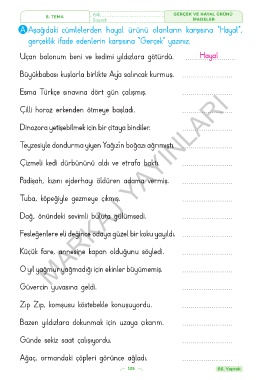 8. TEMA
GERÇEK VE HAYAL ÜRÜNÜ
İFADELER
A Aşağıdaki cümlelerden hayal ürünü olanların karşısına "Hayal",
gerçeklik ifade edenlerin karşısına "Gerçek" yazınız.
Uçan balonum beni ve kedimi yıldızlara götürdü. Hayal
Büyükbabası kuşlarla birlikte Ay'a salıncak kurmuş.
Esma Türkçe sınavına dört gün çalışmış.
Çilli horoz erkenden ötmeye başladı.
Dinozora yetişebilmek için bir çitaya bindiler.
Teyzesiyle dondurma yiyen Yağız'ın boğazı ağrımıştı.
Çizmeli kedi dürbününü aldı ve etrafa baktı.
Padişah, kızını ejderhayı öldüren adama vermiş.
Tuba, köpeğiyle gezmeye çıkmış.
Dağ, önündeki sevimli buluta gülümsedi.
Fesleğenlere eli değince odaya güzel bir koku yayıldı.
Küçük fare, annesine kapan olduğunu söyledi.
O yıl yağmur yağmadığı için ekinler büyümemiş.
Güvercin yuvasına geldi.
Zıp Zıp, komşusu köstebekle konuşuyordu.
Bazen yıldızlara dokunmak için uzaya çıkarım.
Günde sekiz saat çalışıyordu.
Ağaç, ormandaki çöpleri görünce ağladı.
MARKAJ YAYINLARI